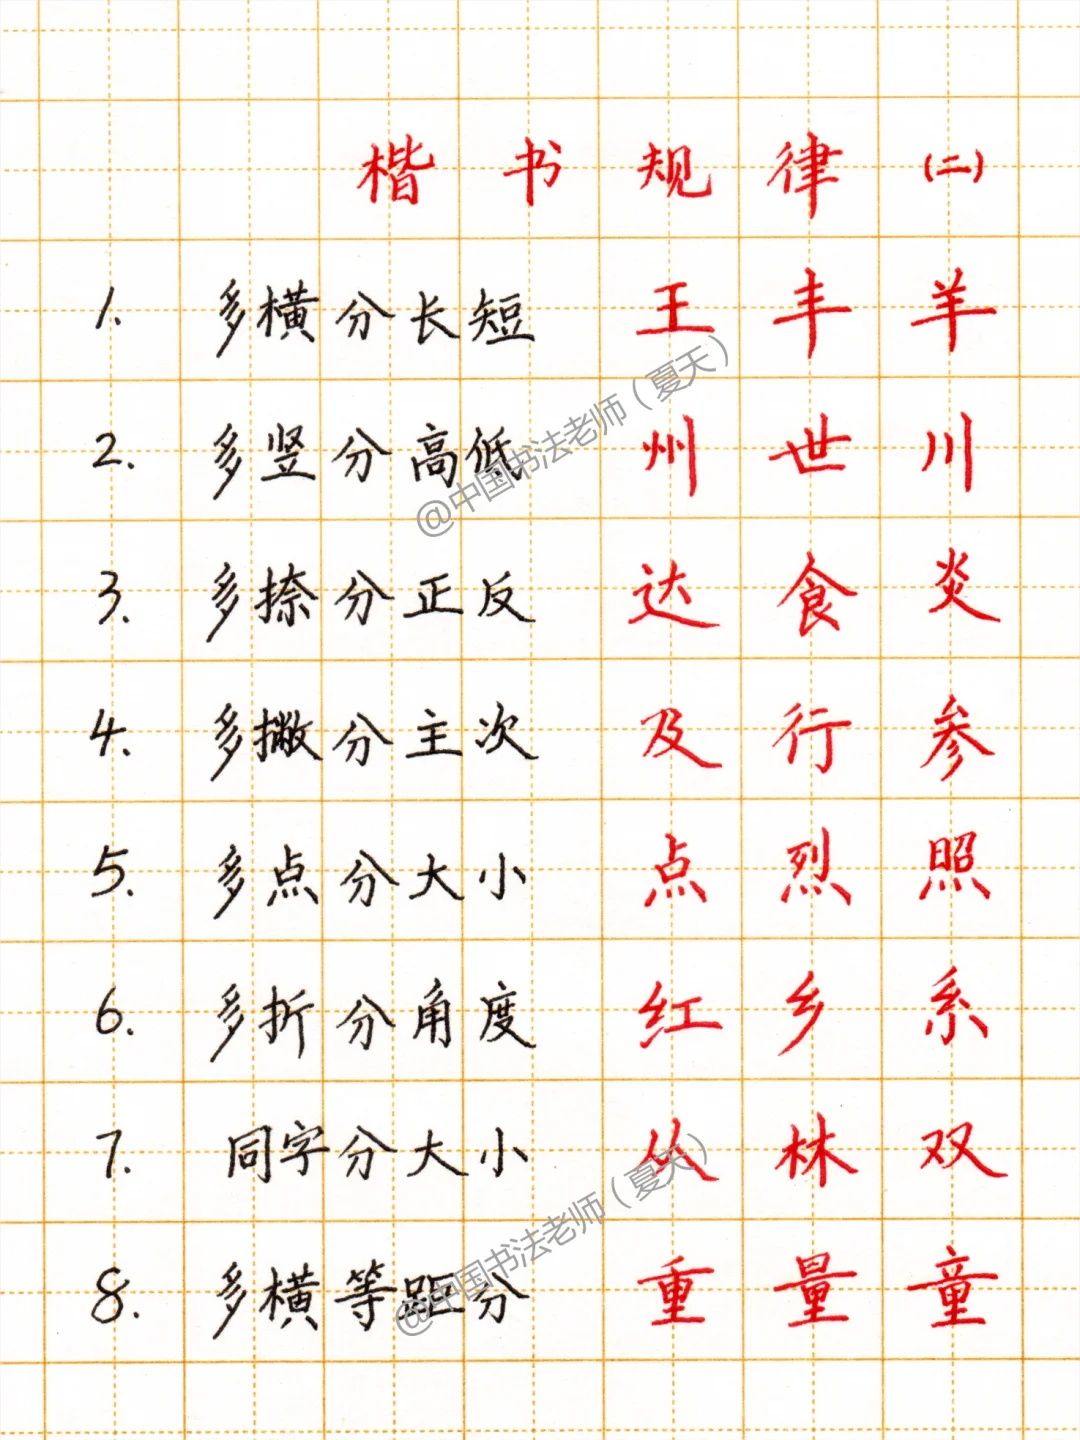 楷书规律(二)
1. 多横分长短 王 丰 羊
2. 多竖分高低 州 世 川
3. 多捺分正反 达 食 炎
4. 多撇分主次 及 行 参
5. 多点分大小 点 烈 照
6. 多折分角度 红 乡 系
7. 同字分大小 从 林 双
8. 多横等距分 重 量 童
@中国书法老师（夏天）
@中国书法老师（夏天）